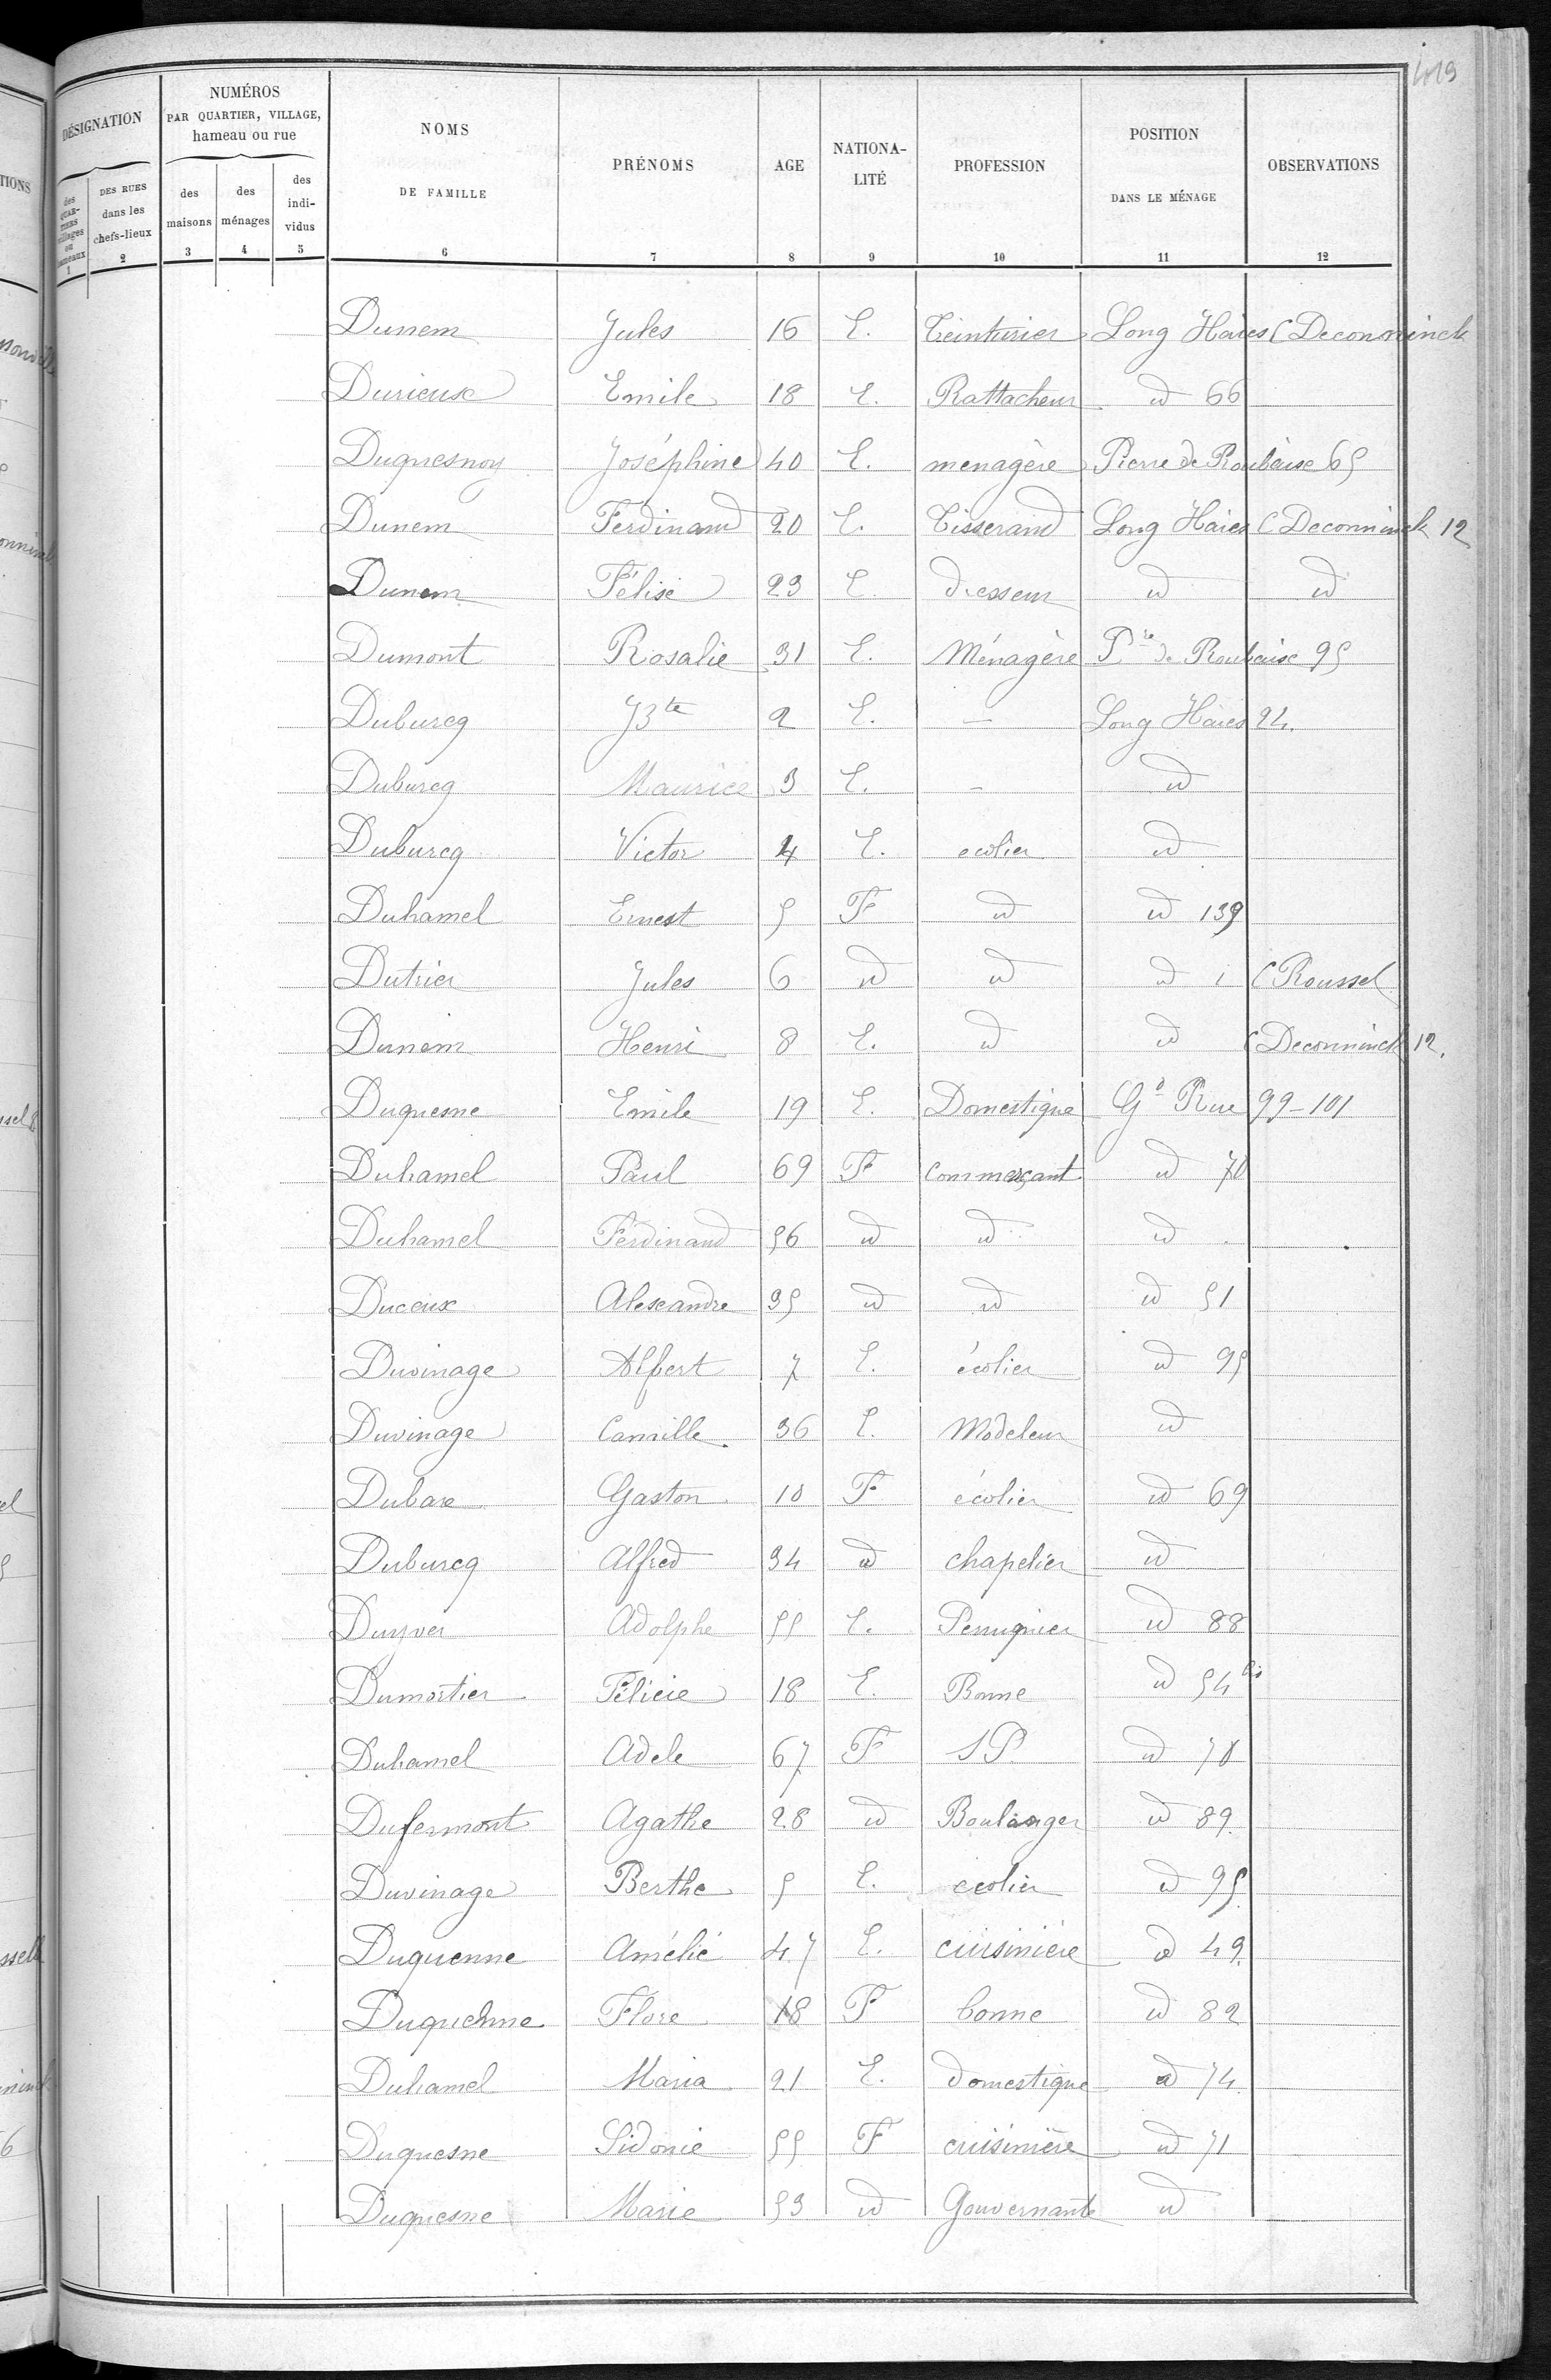 419
DÉSIGNATION
NUMÉROS
PAR QUARTIER, VILLAGE,
hameau ou rue
NOMS
DE FAMILLE
PRÉNOMS
AGE
NATIONA-
LITÉ
PROFESSION
POSITION
DANS LE MÉNAGE
OBSERVATIONS
des QUAR-TIERS villages ou hameaux
DES RUES dans les chefs-lieux
des maisons
des ménages
des indi-vidus
1 2 3 4 5 6 7 8 9 10 11 12
Dunem Jules 16 E. Teinturier Long Haies C Deconninck
Durieux Emile 18 E. Rattacheur id 66
Duquesnoy Joséphine 40 E. menagère Pierre de Roubaix 65
Dunem Ferdinand 20 E. Tisserand Long Haies C Deconninck 12
Dunem Félise 23 E. dresseur id id
Dumont Rosalie 31 E. Ménagère Pre de Roubaix 95
Duburcq JBte 2 E. — Long Haies 24.
Duburcq Maurice 3 E. — id
Duburcq Victor 4 E. ecolier id
Duhamel Ernest 5 F id id 139
Dutrier Jules 6 id id id 1 C Roussel
Dunem Henri 8 E. id id C Deconninck 12.
Duquesne Emile 19 E. Domestique Gd Rue 99-101
Duhamel Paul 69 F Commerçant id 70
Duhamel Ferdinand 56 id id id
Duceux Alexandre 35 id id id 51
Duvinage Albert 7 E. écolier id 95
Duvinage Camille 36 E. Modeleur id
Dubar Gaston 10 F écolier id 69
Duburcq Alfred 34 id chapelier id
Duyver Adolphe 55 E. Perruquier id 88
Dumortier Félicie 18 E. Bonne id 54 bis
Duhamel Adele 67 F SP. id 70
Dufermont Agathe 28 id Boulanger id 89.
Duvinage Berthe 5 E. ecolier id 95.
Duquenne Amélie 47 E. cuisinière id 49.
Duquenne Flore 18 F bonne id 82
Duhamel Maria 21 E. domestique id 74
Duquesne Sidonie 55 F cuisinière id 71
Duquesne Marie 53 id Gouvernante id